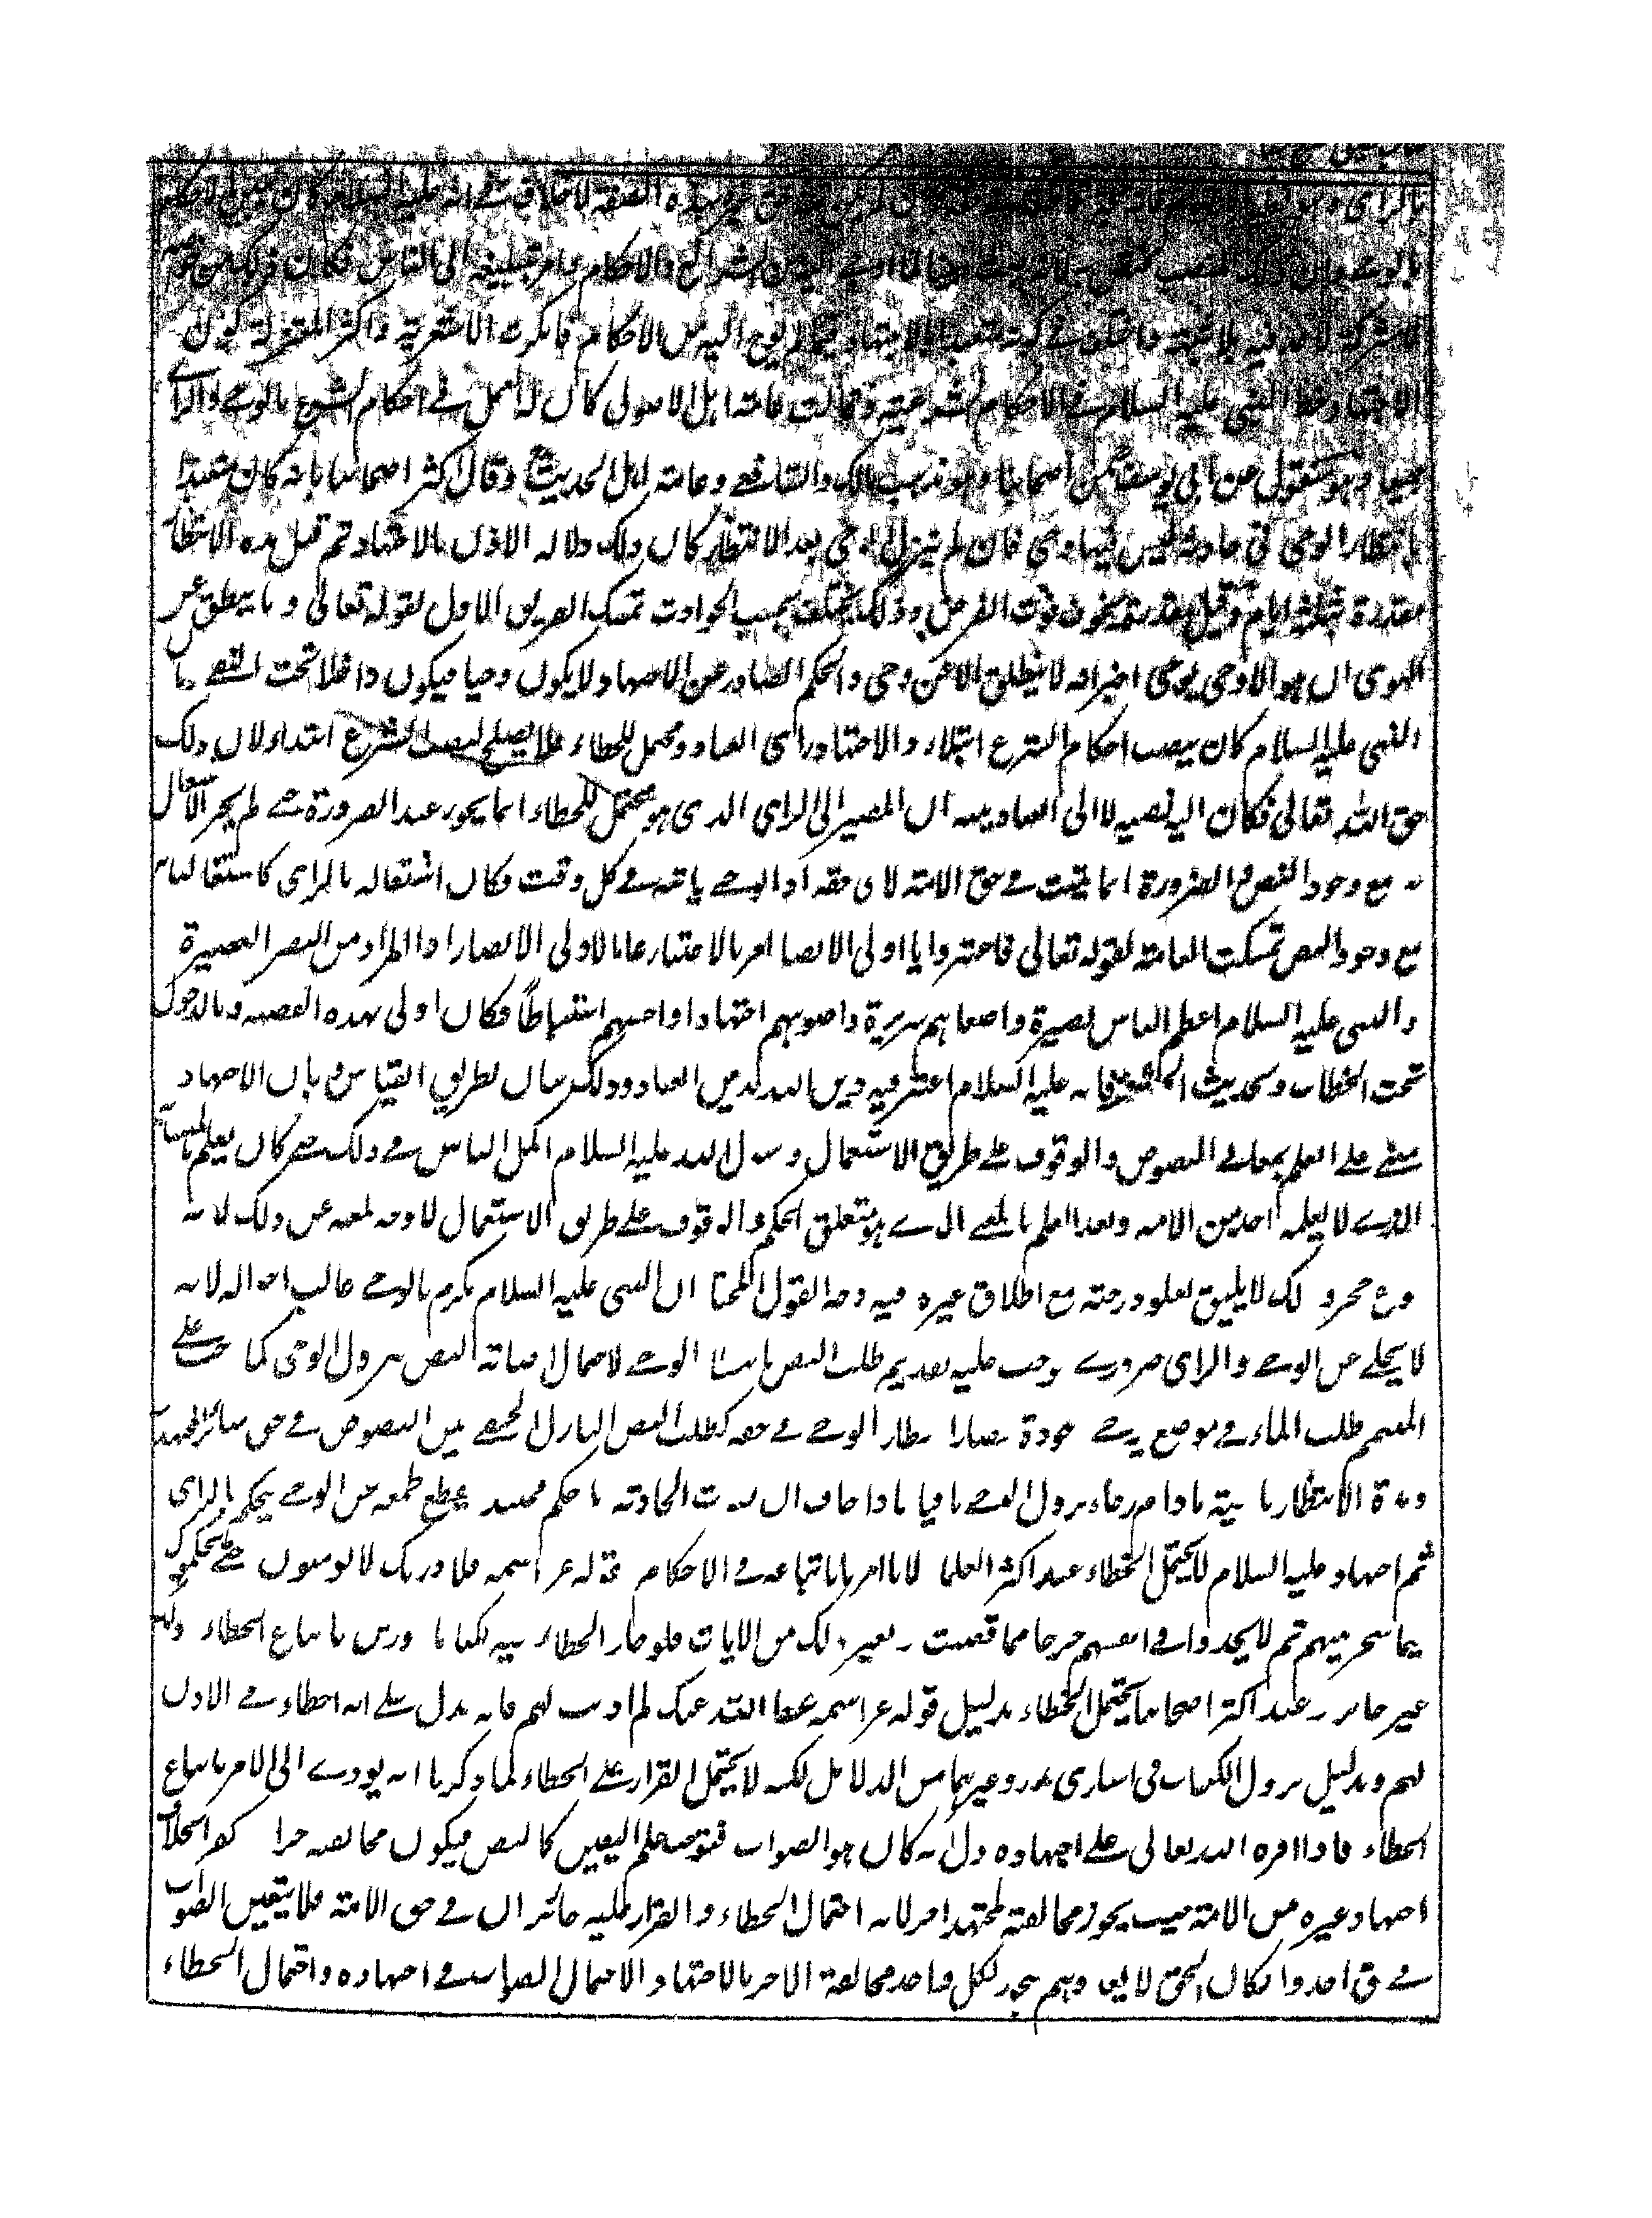 بهذه الصفة لا خلاف في انه عليه السلام كان
بالوحي الشرائع والاحكام وامر بتبليغه الى الناس فكان ذلك من
بلا شبهة فيما لم يوح اليه من الاحكام فانكرت الاشعرية واكثر المعتزلة كون
الاجتهاد حظ النبي عليه السلام في الاحكام الشرعية وقالت عامة اهل الاصول كان له العمل في احكام الشرع بالوحي والراي
جميعا وهو منقول عن ابي يوسف من اصحابنا وهو مذهب مالك والشافعي وعامة اهل الحديث وقال اكثر اصحابنا بانه كان متعبدا
بانتظار الوحي في حادثة ليس فيها وحي فان لم ينزل الوحي بعد الانتظار كان ذلك دلالة الاذن بالاجتهاد ثم قيل مدة الانتظار
مقدرة بثلثة ايام وقيل مقدرة بخوف فوت الغرض وذلك يختلف بحسب الحوادث تمسك الفريق الاول لقوله تعالى وما ينطق عن
الهوى ان هو الا وحي يوحى اخبر انه لا ينطق الا عن وحي والحكم الصادر عن الاجتهاد لا يكون وحيا فيكون داخلا تحت النفي
النبي عليه السلام كان ينصب احكام الشرع ابتداء والاجتهاد راي العباد ومحتمل للخطاء فلا يصلح لنصب الشرع ابتداء لان ذلك
حق الله تعالى فكان اليه نصبه لا الى العباد ان المصير الى الراي الذي هو محتمل للخطاء انما يجوز عند الضرورة حتى لم يجز
مع وجود النص والضرورة انما تثبت في حق الامة لا في حقه اذ الوحي ياتيه في كل وقت فكان اشتغاله بالراي
مع وجود النص تمسكت العامة لقوله تعالى فاعتبروا يا اولي الابصار امر بالاعتبار عاما لاولي الابصار اذ المراد من البصر البصيرة
والنبي عليه السلام اعظم الناس بصيرة واصفاهم سريرة واصوبهم اجتهادا واحسنهم استنباطا فكان اولى بهذه الفضيلة وبالدخول
تحت الخطاب وبحديث الخثعمية فانه عليه السلام اعتبر فيه دين الله بدين العباد وذلك بيان بطريق القياس وبان الاجتهاد
مبني على العلم بمعاني النصوص والوقوف على طريق الاستعمال ورسول الله عليه السلام اكمل الناس في ذلك حتى كان يعلم بالمتشابه
الذي لا يعلمه احد من الامة وبعد العلم بالمعنى الذي هو متعلق الحكم والوقوف على طريق الاستعمال لا وجه لمنعه عن ذلك لانه
نوع حجر وذلك لا يليق بعلو درجته مع اطلاق غيره فيه وجه القول المختار ان النبي عليه السلام مكرم بالوحي غالب احواله لانه
لا يخلى عن الوحي والراي ضروري وجب عليه تقديم طلب النص بانتظار الوحي لاحتمال اصابته النص بنزول الوحي كما يجب على
المتيمم طلب الماء في موضع يرجى وجوده فصار انتظار الوحي في حقه كطلب النص النازل الخفي بين النصوص في حق سائر المجتهدين
ومدة الانتظار باقية ما دام رجاء نزول الوحي باقيا فاذا خاف ان تفوت الحادثة بلا حكم فحينئذ ينقطع طمعه عن الوحي يحكم بالراي
ثم اجتهاده عليه السلام لا يحتمل الخطاء عند اكثر العلماء لانا امرنا باتباعه في الاحكام قوله عز اسمه فلا وربك لا يومنون حتى يحكموك
فيما شجر بينهم ثم لا يجدوا في انفسهم حرجا مما قضيت وبغير ذلك من الايات فلو جاز الخطاء فيه لكنا مامورين باتباع الخطاء وذلك
غير جائز وعند اكثر اصحابنا يحتمل الخطاء بدليل قوله عز اسمه عفا الله عنك لم اذنت لهم فانه يدل على انه اخطاء في الاذن
لهم وبدليل نزول الكتاب في اسارى بدر وغيرهما من الدلائل لكنه لا يحتمل القرار على الخطاء لما ذكرنا انه يودي الى الامر باتباع
الخطاء فاذا اقره الله تعالى على اجتهاده دل انه كان هو الصواب فيوجب علم اليقين كالنص فيكون مخالفته حراما وكفرا بخلاف
اجتهاد غيره من الامة حيث يجوز مخالفته لمجتهد اخر لان احتمال الخطاء والقرار عليه جائزان في حق الامة فلا يتعين الصواب
في حق احد وان كان الحق لا يعدوهم يجوز لكل واحد مخالفة الاخر بالاجتهاد لاحتمال الصواب في اجتهاده واحتمال الخطاء